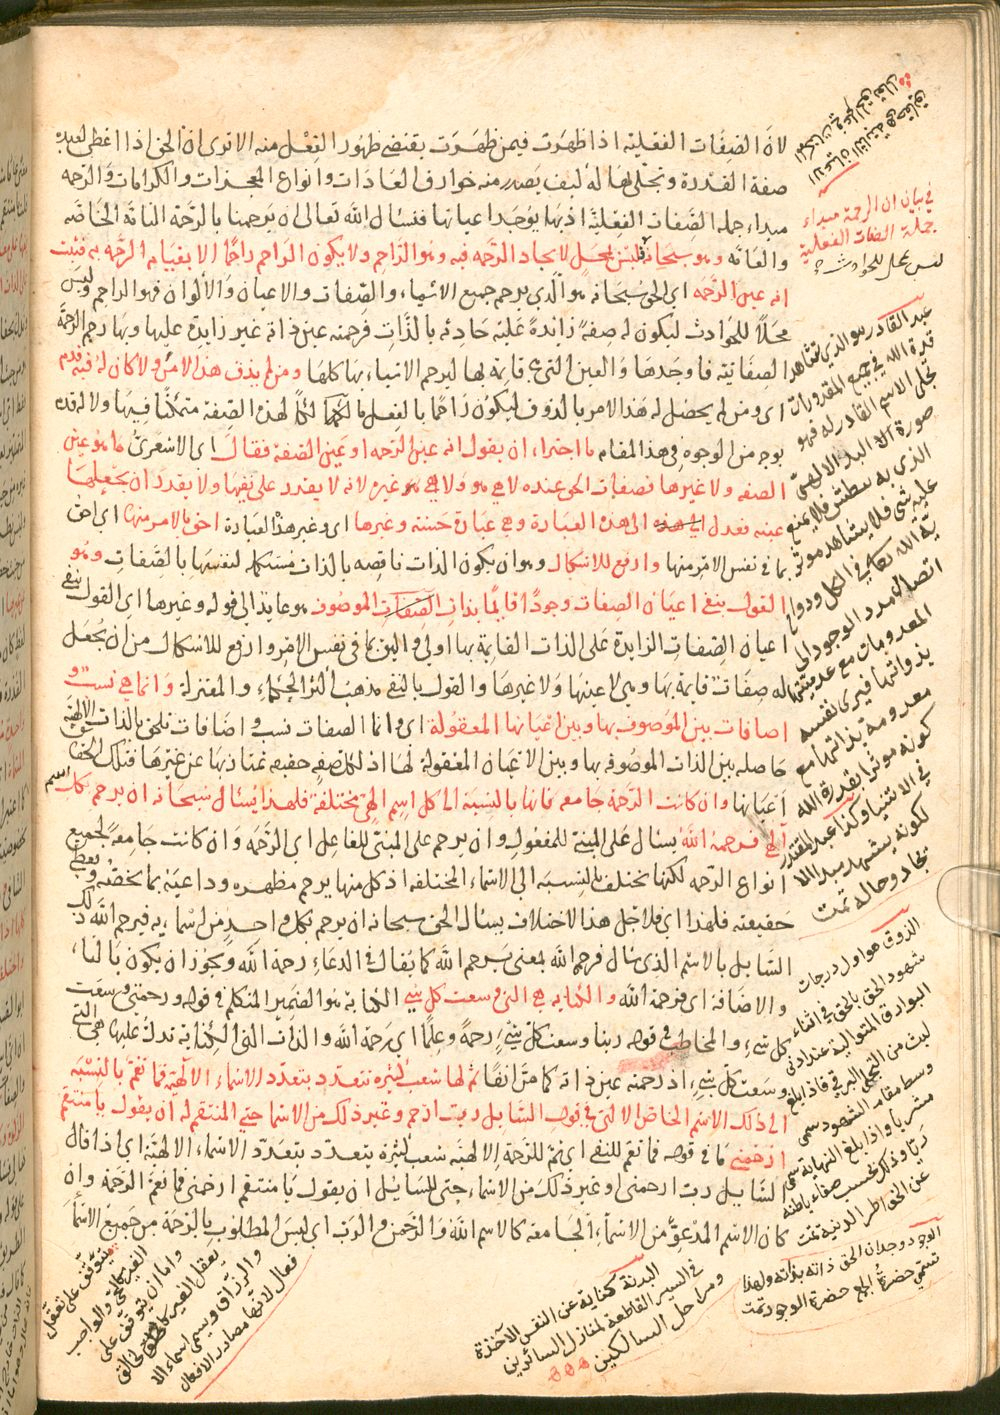 لان الصفات الفعلية اذا ظهرت فيمن ظهرت يقتضى ظهور الفعل منه الا ترى ان الحق اذا اعطى لعبده
صفة القدرة وتجلى بها له كيف يصدر منه خوارق العادات وانواع المعجزات والكرامات والرحمة
مبداء جملة الصفات الفعلية اذ بها يوجد اعيانها فنسال الله تعالى ان يرحمنا بالرحمة التامة الخاصة
والعامة وهو سبحانه ليس بمحل لايجاد الرحمة فيه وهو الراحم ولا يكون الراحم راحما الا بقيام الرحمة به فثبت
انه عين الرحمة اى الحق سبحانه هو الذى يرحم جميع الاشياء والصفات والاعيان والالوان فهو الراحم وليس
محلا للحوادث ليكون له صفة زايدة عليه حادثة بالذات فرحمته عين ذاته غير زايدة عليها وبها رحم الرحمة
الصفاتية فاوجدها والعين التى قايمة بها ليرحم الاشياء بها كلها ومن لم يذق هذا الامر ولا كان له فيه قدم
اى ومن لم يحصل له هذا الامر بالذوق ليكون راحما بالفعل لهذه الصفة متمكنا فيها ولا له قدم
بوجه من الوجوه فى هذا المقام ما اجتراء ان يقول انه عين الرحمة او عين الصفة فقال اى الاشعرى ما هو عين
الصفة ولا غيرها فصفات الحق عنده لا هى هو ولا هى غيره لانه لا يقدر على نفيها ولا يقدر ان يجعلها
عينه فعدل الى هذه العبارة وهى عبارة حسنة وغيرها اى وغير هذا العبارة احق بالامر منها اى احق
بما فى نفس الامر منها وارفع للاشكال وهو ان يكون الذات ناقصه بالذات مستكملة لنفسها بالصفات وهو
القول بنفى اعيان الصفات وجودا قايما بذات الموصوف هو عايد الى قوله وغيرها اى القول بنفى
اعيان الصفات الزايدة على الذات القايمة بها اولى واليق بما فى نفس الامر وارفع للاشكال من ان يجعل
له صفات قايمة بها وهى لا عينها ولا غيرها والقول بالنفى مذهب اكثر الحكماء والمعتزلة وانما هى نسب و
اضافات بين الموصوف بها وبين اعيانها المعقولة اى وانما الصفات نسب واضافات تلحق بالذات الالهية
حاصله بين الذات الموصوفة بها وبين الاعيان المعقولة لها اذ لكل صفة حقيقة تمتاز بها عن غيرها فتلك الحقايق
اعيانها وان كانت الرحمة جامعه فانها بالنسبة الى كل اسم الهى مختلفة فلهذا يسال سبحانه ان يرحم بكل اسم
الهى فرحمه الله يسال على المبنى للمفعول وان يرحم على المبنى للفاعل اى الرحمة وان كانت جامعة لجميع
انواع الرحمة لكنها تختلف بالنسبة الى الاسماء المختلفة اذ كل منها يرحم مظهره وداعيه بما يخصه ويعطى
حقيقته فلهذا اى فلاجل هذا الاختلاف يسال الحق سبحانه ان يرحم بكل واحد من اسمايه فيرحم الله ذلك
السايل بالاسم الذى سال فرحم الله بمعنى يرحم الله كما يقال فى الدعاء رحمه الله ويجوز ان يكون بالتاء
والاضافة اى فرحمة الله والكناية هى التى وسعت كل شى الكناية هو الضمير المتكلم فى قوله ورحمتى وسعت
كل شىء والمخاطب فى قوله ربنا وسعت كل شىء رحمة وعلما اى رحمة الله والذات التى الكناية تدل عليها هى التى
وسعت كل شىء اذ رحمته عين ذاته كما مر انفا ثم لها شعب كثيرة تتعدد بتعدد الاسماء الالهية فما تعم بالنسبة
الى ذلك الاسم الخاص الالهى فى قول السايل رب ارحم وغير ذلك من الاسما حتى المنتقم له ان يقول يا منتقم
ارحمنى ما فى قوله فما تعم للنفى اى ثم للرحمة الالهية شعب كثيرة يتعدد بتعدد الاسماء الالهية اى اذا قال
السايل رب ارحمنى او غير ذلك من الاسماء حتى للسايل ان يقول يا منتقم ارحمنى فما تعم الرحمة وان
كان الاسم المدعو من الاسماء الجامعة كالاسم الله والرحمن والرب اى ليس المطلوب بالرحمة من جميع الاسما
فى بيان ان الرحمة مبداء
جملة الصفات الفعلية
ليس بمحل للحوادث
عبد القادر هو الذى تشاهد
قدرة الله فى جميع المقدورات
تجلى الاسم القادر له فهو
صورة اليد الالهى
الذى به يبطش فلا يمنع
عليه شى فلا يشاهد موثر
اتصال مدد الوجود الى
المعدومات مع عدميتها
بذواتها فيرى نفسه
معدومة بذاتها مع
كونه موثرا بقدرة الله
فى الاشياء وكذا عبد المقتدر
لكونه يشهد مبداء الا
يجاد وحاله تمت
الذوق هو اول درجات
شهود الحق بالحق فى اثناء
البوارق المتوالية عند ادنى
لبث من التجلى البرقى فاذا بلغ
وسط مقام الشهود سمى
مشربا واذا بلغ النهاية سمى
ريا وذلك بحسب صفاء باطنه
عن الحق
الوجود وجدان الحق ذاته بذاته ولهذا
تسمى حضرة الجمع حضرة الوجود تمت
البدنة كناية عن النفس الآخذة
فى السير القاطعة لمنازل السائرين
ومراحل السالكين
يتوقف على تعقل
الغير كالحى والواجب
واما ان يتوقف على
تعقل الغير كالخالق
والرزاق ويسمى اسماء الا
فعال لانها مصادر الافعال